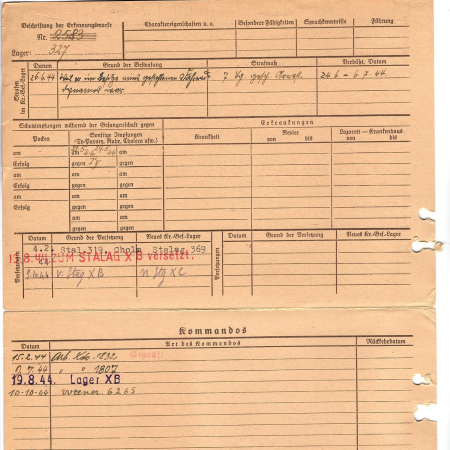 Beschriftung der Erkennungsmarke
Nr. 2583
Lager: 327
Charaktereigenschaften u. s.
Besondere Fähigkeiten
Sprachkenntnisse
Führung
Strafen im Kr.-Gef.-Lager
Datum
Grund der Bestrafung
Strafmaß
Verbüßt, Datum
26.6.44 Weil er im Besitz eines
7 Tg.
24.6. - 6.7.44
Schutzimpfungen während der Gefangenschaft gegen
Erkrankungen
Pocken
Sonstige Impfungen
(Ty-Paraty, Ruhr, Cholera usw.)
Krankheit
Revier
von bis
Lazarett — Krankenhaus
von bis
am am am
Erfolg gegen gegen
am am am
Erfolg gegen gegen
am am
gegen gegen
am am
gegen gegen
Versetzungen
Datum
Grund der Versetzung
Neues Kr.-Gef.-Lager
Datum
Grund der Versetzung
Neues Kr.-Gef.-Lager
4.2. Stal.319, Cholm Stalag 369
44
19.8.44 ZUM STALAG X B versetzt.
v. Stlg X B n. Stlg X C
Kommandos
Datum
Art des Kommandos
Rückkehrdatum
15.2.44 Arb. Kdo. 1832
7.44 " " 1807
19.8.44. Lager XB
10-10-44 Weener 6265